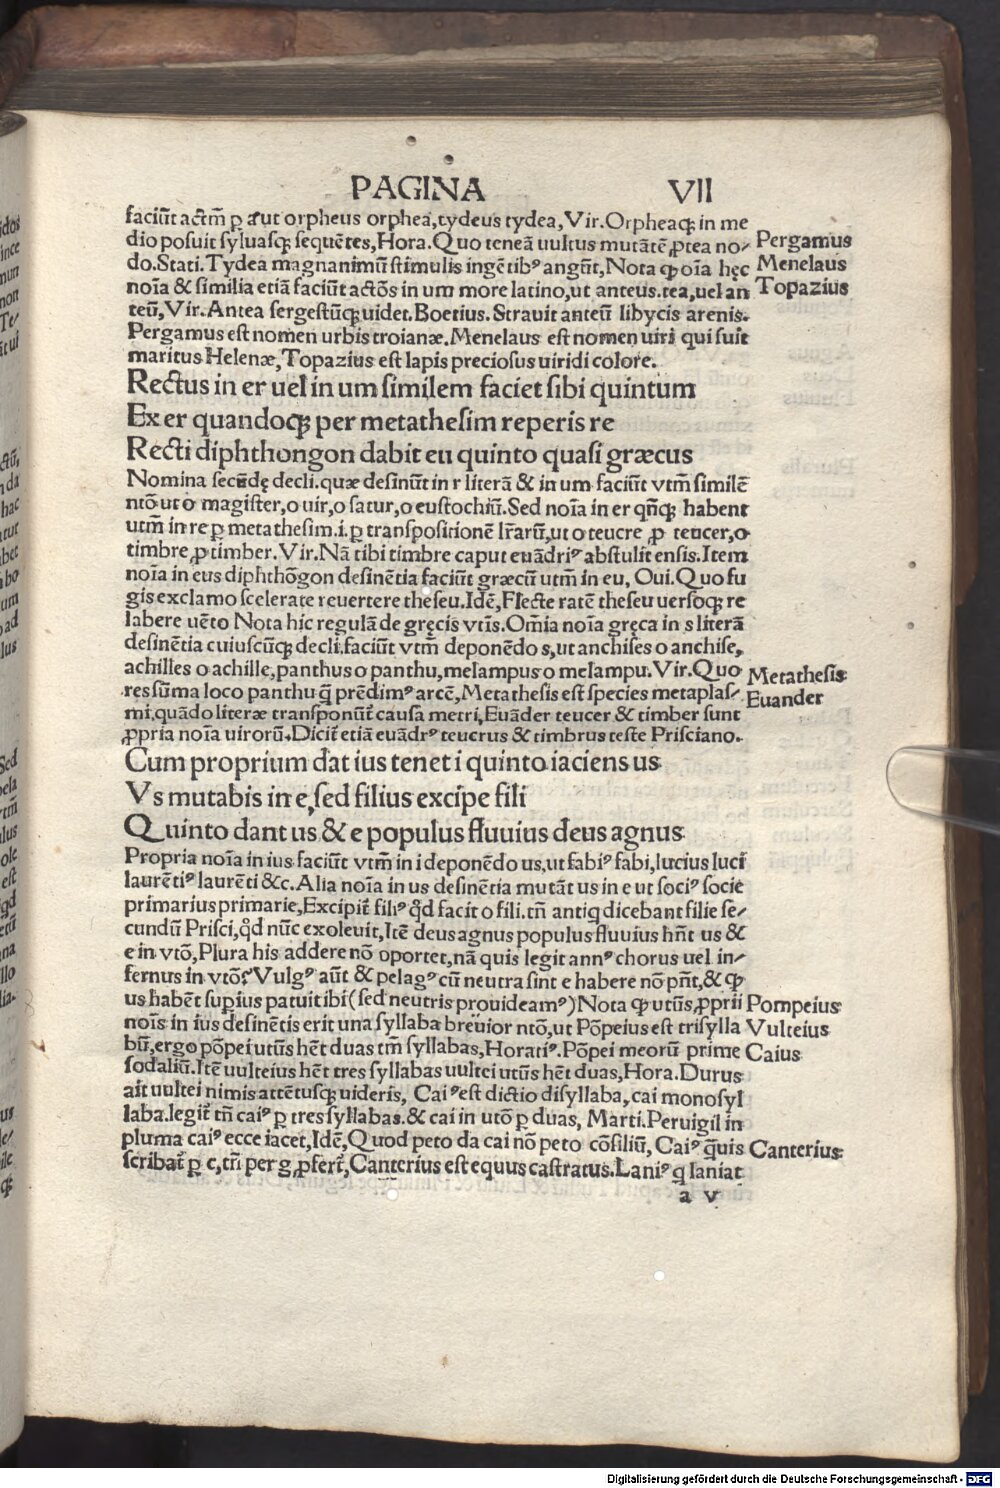 PAGINA VII
faciūt actm̄ p a, ut orpheus orphea, tydeus tydea, Vir. Orpheaq; in me
dio posuit syluasq; sequētes, Hora. Quo teneā uultus mutātē ꝓtea no/
do. Stati. Tydea magnanimū stimulis ingētibꝰ angūt, Nota ꝙ oīa hęc
noīa & similia etiā faciūt actōs in um more latino, ut anteus. tea, uel an
teū, Vir. Antea sergestūq; uidet. Boetius. Strauit anteū libycis arenis.
Pergamus est nomen urbis troianæ. Menelaus est nomen uiri qui fuit
maritus Helenæ, Topazius est lapis preciosus uiridi colore.
Pergamus
Menelaus
Topazius
Rectus in er uel in um similem faciet sibi quintum
Ex er quandoq; per metathesim reperis re
Recti diphthongon dabit eu quinto quasi græcus
Nomina secūdę decli. quæ desinūt in r literā & in um faciūt vtm̄ similē
ntō ut o magister, o uir, o satur, o eustochiū. Sed noīa in er qn̄q; habent
utm̄ in re p metathesim. i. p transpositionē lr̄arū, ut o teucre ꝓ teucer, o
timbre ꝓ timber. Vir. Nā tibi timbre caput euādriꝰ abstulit ensis. Item
noīa in eus diphthōgon desinētia faciūt græcū utm̄ in eu, Oui. Quo fu
gis exclamo scelerate reuertere theseu. Idē, Flecte ratē theseu uersoq; re
labere uēto Nota hic regulā de gręcis vtīs. Om̄ia noīa gręca in s literā
desinētia cuiuscūq; decli. faciūt vtm̄ deponēdo s, ut anchises o anchise,
achilles o achille, panthus o panthu, melampus o melampu. Vir. Quo
res sūma loco panthu q̄ prēdimꝰ arcē, Metathesis est species metaplas/
mi, quādo literæ transponūt̄ causa metri, Euāder teucer & timber sunt
ꝓpria noīa uirorū. Dicit̄ etiā euādrꝰ teucrus & timbrus teste Prisciano.
Metathesis
Euander
Cum proprium dat ius tenet i quinto iaciens us
Vs mutabis in e, sed filius excipe fili
Quinto dant us & e populus fluuius deus agnus
Propria noīa in ius faciūt vtm̄ in i deponēdo us, ut fabiꝰ fabi, lucius luci
laurētiꝰ laurēti &c. Alia noīa in us desinētia mutāt us in e ut sociꝰ socie
primarius primarie, Excipit̄ filiꝰ qd̄ facit o fili. tn̄ antiq dicebant filie se/
cundū Prisci, qd̄ nūc exoleuit, Itē deus agnus populus fluuius hn̄t us &
e in vtō, Plura his addere nō oportet, nā quis legit annꝰ chorus uel in/
fernus in vtō? Vulgꝰ aūt & pelagꝰ cū neutra sint e habere nō pn̄t, & ꝙ
us habēt supius patuit ibi (sed neutris prouideamꝰ) Nota ꝙ utūs ꝓprii
noīs in ius desinētis erit una syllaba breuior ntō, ut Pōpeius est trisylla
bū, ergo pōpei utūs hēt duas tm̄ syllabas, Horatiꝰ. Pōpei meorū prime
sodaliū. Itē uulteius hēt tres syllabas uultei utūs hēt duas, Hora. Durus
ait uultei nimis attētusq; uideris, Caiꝰ est dictio disyllaba, cai monosyl
laba. legit̄ tn̄ caiꝰ p tres syllabas. & cai in utō p duas, Marti. Peruigil in
pluma caiꝰ ecce iacet, Idē, Quod peto da cai nō peto cōsiliū, Caiꝰ q̄uis
scribat̄ p c, tn̄ per g ꝓfert̄, Canterius est equus castratus. Laniꝰ q laniat
Pompeius
Vulteius
Caius
Canterius
a v
Digitalisierung gefördert durch die Deutsche Forschungsgemeinschaft - DFG